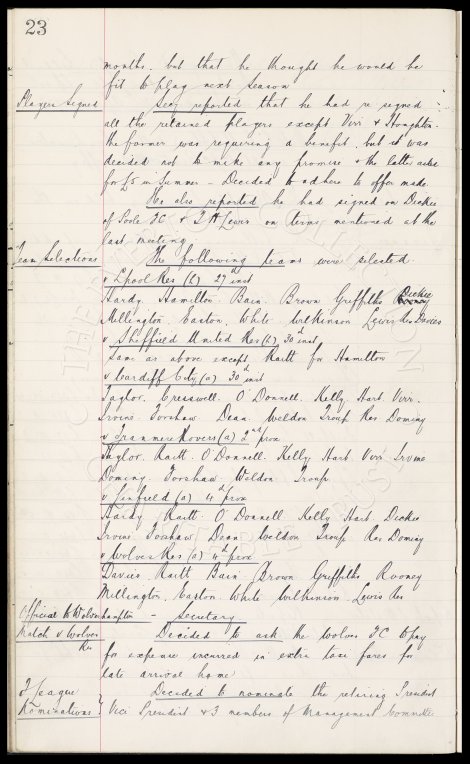 23
months. but that he thought he would be
fit to play next season
Players Signed
Secy reported that he had re signed
all the retained players except Virr & Houghton.
the former was requiring a benefit, but it was
decided not to make any promise & the latter asks
for £5 in Summer - Decided to adhere to offer made.
He also reported he had signed on Dickie
of Poole FC & T H Lewis on terms mentioned at the
last meeting
Team Selections
The following teams were selected
v Lpool Res (h) 27th inst
Hardy. Hamilton. Bain. Brown Griffiths Dickie
Millington. Easton. White. Wilkinson Lewis Res Davies
v Sheffield United Res (h) 30th inst
Same as above except Raitt for Hamilton
v Cardiff City (a) 30th inst
Taylor. Cresswell. O'Donnell. Kelly Hart. Virr.
Irvine. Forshaw. Dean. Weldon Troup Res Doming
v Tranmere Rovers (a) 2nd prox
Taylor. Raitt. O'Donnell. Kelly Hart Virr Irvine
Doming. Forshaw. Weldon. Troup
v Linfield (a) 4th prox
Hardy Raitt. O'Donnell Kelly Hart. Dickie
Irvine Forshaw. Dean Weldon Troup Res Doming
v Wolves Res (a) 4th prox
Davies. Raitt Bain. Brown Griffiths Rooney
Millington. Easton. White Wilkinson. Lewis Res
Official to Wolverhampton - Secretary
Match v Wolves
Res
Decided to ask the Wolves FC to pay
for expense incurred in extra taxi fares for
late arrival home
F League
Nominations
Decided to nominate the retiring President
Vice President & 3 members of Management Committee